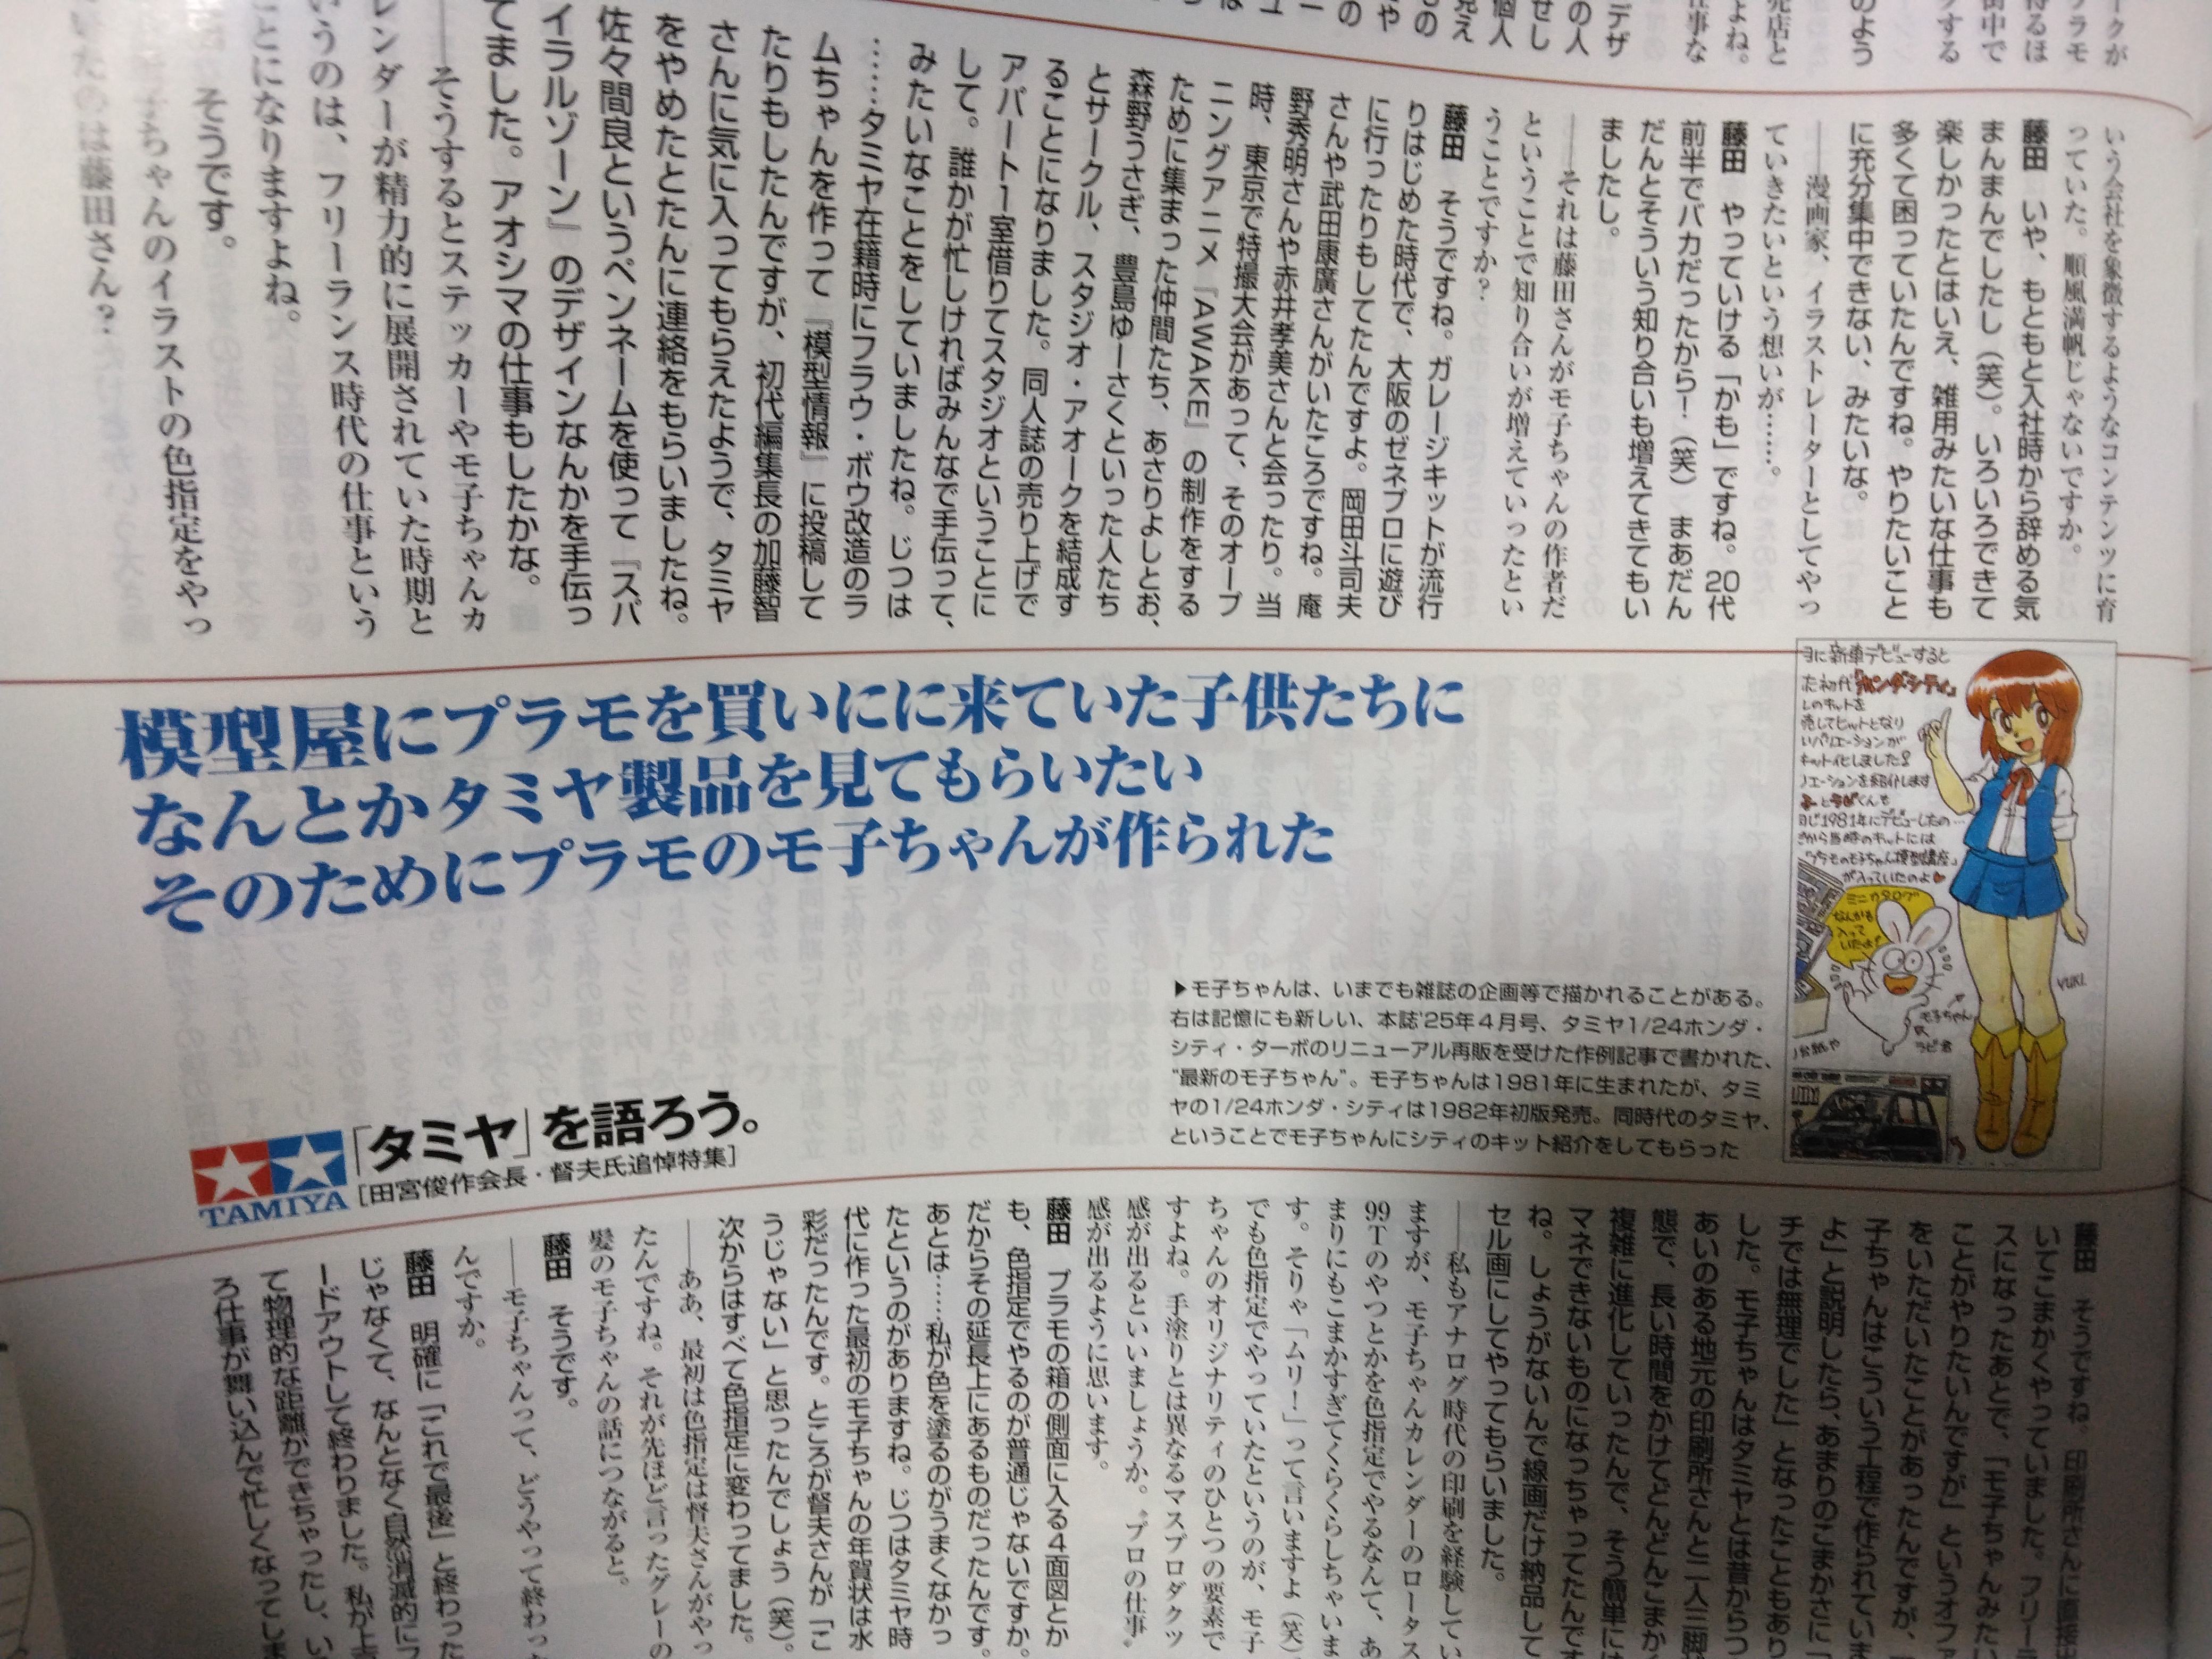 いう会社を象徴するようなコンテンツに育
っていた。順風満帆じゃないですか。
藤田　いや、もともと入社時から辞める気
まんまんでしたし（笑）。いろいろできて
楽しかったとはいえ、雑用みたいな仕事も
多くて困っていたんですね。やりたいこと
に充分集中できない、みたいな。
――漫画家、イラストレーターとしてやっ
ていきたいという想いが……。
藤田　やっていける「かも」ですね。20代
前半でバカだったから！（笑）　まあだん
だんとそういう知り合いも増えてきてもい
ましたし。
――それは藤田さんがモ子ちゃんの作者だ
ということで知り合いが増えていったとい
うことですか？
藤田　そうですね。ガレージキットが流行
りはじめた時代で、大阪のゼネプロに遊び
に行ったりもしてたんですよ。岡田斗司夫
さんや武田康廣さんがいたころですね。庵
野秀明さんや赤井孝美さんと会ったり。当
時、東京で特撮大会があって、そのオープ
ニングアニメ『AWAKE』の制作をする
ために集まった仲間たち、あさりよしとお、
森野うさぎ、豊島ゆーさくといった人たち
とサークル、スタジオ・アオークを結成す
ることになりました。同人誌の売り上げで
アパート1室借りてスタジオということに
して。誰かが忙しければみんなで手伝って、
みたいなことをしていましたね。じつは
……タミヤ在籍時にフラウ・ボウ改造のラ
ムちゃんを作って『模型情報』に投稿して
たりもしたんですが、初代編集長の加藤智
さんに気に入ってもらえたようで、タミヤ
をやめたとたんに連絡をもらいましたね。
佐々間良というペンネームを使って『スパ
イラルゾーン』のデザインなんかを手伝っ
てました。アオシマの仕事もしたかな。
――そうするとステッカーやモ子ちゃんカ
レンダーが精力的に展開されていた時期と
いうのは、フリーランス時代の仕事という
ことになりますよね。
そうです。
ちゃんのイラストの色指定をやっ
いたのは藤田さん？
模型屋にプラモを買いにに来ていた子供たちに
なんとかタミヤ製品を見てもらいたい
そのためにプラモのモ子ちゃんが作られた
ヨに新車デビューすると
た初代『ホンダ・シティ』
しのキットを
売してヒットとなり
いバリエーションが
キット化しました
リエーションを紹介します
子とラビくんも
ヨじ1981年にデビューしたの…
さから当時のキットには
「プラモのモ子ちゃん模型講座」
が入っていたのよ
ミニカタログ
なんかも
入って
いたよ！
モ子ちゃん
ラビ君
YUKI.
▶モ子ちゃんは、いまでも雑誌の企画等で描かれることがある。
右は記憶にも新しい、本誌'25年4月号、タミヤ1/24ホンダ・
シティ・ターボのリニューアル再販を受けた作例記事で書かれた、
“最新のモ子ちゃん”。モ子ちゃんは1981年に生まれたが、タミ
ヤの1/24ホンダ・シティは1982年初版発売。同時代のタミヤ、
ということでモ子ちゃんにシティのキット紹介をしてもらった
TAMIYA
「タミヤ」を語ろう。
［田宮俊作会長・督夫氏追悼特集］
藤田　そうですね。印刷所さんに直接出
いてこまかくやっていました。フリーラ
スになったあとで、「モ子ちゃんみたい
ことがやりたいんですが」というオファ
をいただいたことがあったんですが、
子ちゃんはこういう工程で作られていま
よ」と説明したら、あまりのこまかさに「
チでは無理でした」となったこともあり
した。モ子ちゃんはタミヤとは昔からつ
あいのある地元の印刷所さんと二人三脚
態で、長い時間をかけてどんどんこまか
複雑に進化していったんで、そう簡単には
マネできないものになっちゃってたんです
ね。しょうがないんで線画だけ納品して
セル画にしてやってもらいました。
――私もアナログ時代の印刷を経験してい
ますが、モ子ちゃんカレンダーのロータス
99Tのやつとかを色指定でやるなんて、あ
まりにもこまかすぎてくらくらしちゃいま
す。そりゃ「ムリ！」って言いますよ（笑）
でも色指定でやっていたというのが、モ子
ちゃんのオリジナリティのひとつの要素で
すよね。手塗りとは異なるマスプロダクツ
感が出るといいましょうか。〝プロの仕事〟
感が出るように思います。
藤田　プラモの箱の側面に入る4面図とか
も、色指定でやるのが普通じゃないですか。
だからその延長上にあるものだったんです。
あとは……私が色を塗るのがうまくなかっ
たというのがありますね。じつはタミヤ時
代に作った最初のモ子ちゃんの年賀状は水
彩だったんです。ところが督夫さんが「こ
うじゃない」と思ったんでしょう（笑）。
次からはすべて色指定に変わってました。
――ああ、最初は色指定は督夫さんがやっ
たんですね。それが先ほど言ったグレーの
髪のモ子ちゃんの話につながると。
藤田　そうです。
――モ子ちゃんって、どうやって終わっ
んですか。
藤田　明確に「これで最後」と終わった
じゃなくて、なんとなく自然消滅的にフ
ードアウトして終わりました。私が上京
て物理的な距離ができちゃったし、い
ろ仕事が舞い込んで忙しくなってしま